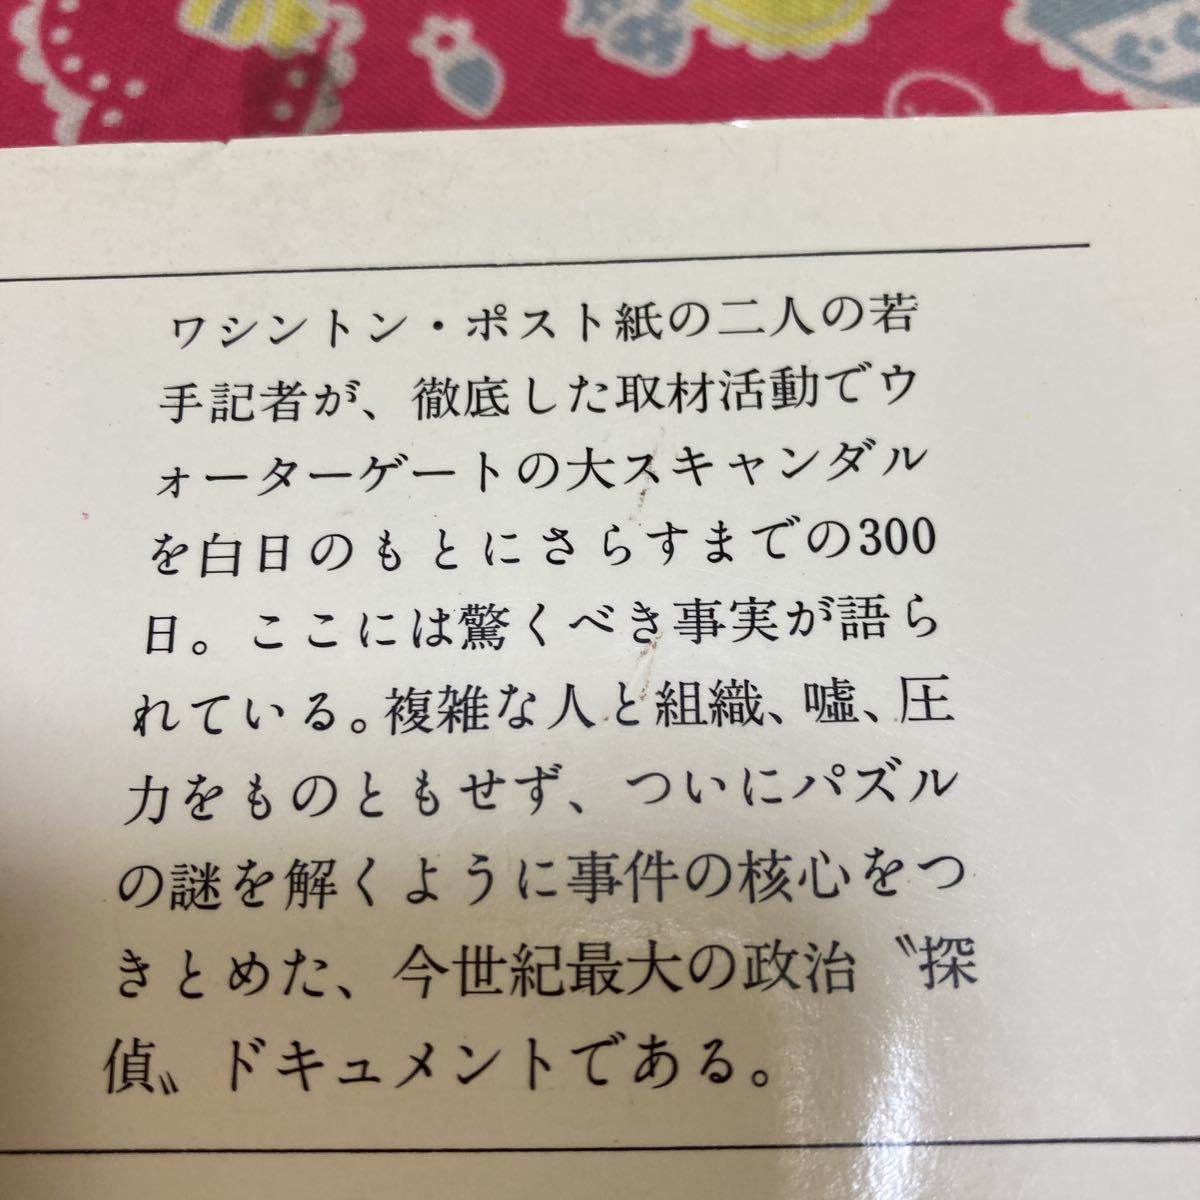 ワシントン・ポスト紙の二人の若
手記者が、徹底した取材活動でウ
ォーターゲートの大スキャンダル
を白日のもとにさらすまでの300
日。ここには驚くべき事実が語ら
れている。複雑な人と組織、嘘、圧
力をものともせず、ついにパズル
の謎を解くように事件の核心をつ
きとめた、今世紀最大の政治〝探
偵〟ドキュメントである。